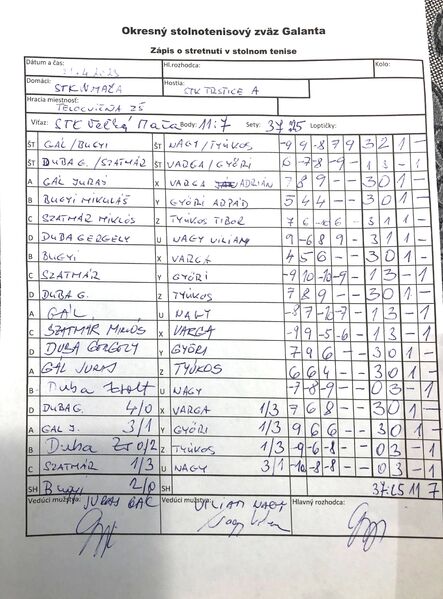 Okresný stolnotenisový zväz Galanta
Zápis o stretnutí v stolnom tenise
Dátum a čas: Hl.rozhodca: Kolo:
Domáci: STK V. MAČA Hostia: STK TRSTICE A
Hracia miestnosť: TELOCVIČŇA ZŠ
Víťaz: STK Veľká Mača Body: 11:7 Sety: 37:25 Loptičky:
ŠT GÁL/BUGYI ŠT NAGY/TYÚKOS -9 9 -8 7 9 3 2 1 -
ŠT DUBA G./SZATMÁR ŠT VARGA/GYŐRI 6 -7 -8 -9 - 1 3 - 1
A GÁL JURAŠ X VARGA ADRIÁN 7 8 9 - - 3 0 1 -
B BUGYI MIKULÁŠ Y GYŐRI ARPÁD 5 4 4 - - 3 0 1 -
C SZATMÁR MIKLÓS Z TYÚKOS TIBOR 7 6 -10 6 3 1 1 -
D DUBA GERGELY U NAGY VILIAM 9 -6 8 9 - 3 1 1 -
B BUGYI X VARGA 4 5 6 - - 3 0 1 -
C SZATMÁR Y GYŐRI -9 10 -10 -9 - 1 3 - 1
D DUBA G. Z TYÚKOS 7 8 9 - - 3 0 1 -
A GÁL U NAGY -8 7 -10 -7 - 1 3 - 1
C SZATMÁR MIKLÓS X VARGA -9 9 -5 -6 - 1 3 - 1
D DUBA GERGELY Y GYŐRI 7 9 6 - - 3 0 1 -
A GÁL JURAS Z TYÚKOS 6 6 4 - - 3 0 1 -
B Duba Zsolt U NAGY -7 -8 -9 - - 0 3 - 1
D DUBA G. 4/0 X VARGA 1/3 7 6 8 - - 3 0 1 -
A GÁL J. 3/1 Y GYŐRI 1/3 9 6 6 - - 3 0 1 -
B Duba Zs 0/2 Z TYÚKOS 1/3 -9 -6 -8 - - 0 3 - 1
C SZATMÁR 1/3 U NAGY 3/1 -10 -8 -8 - - 0 3 - 1
SH Bugyi 2/0 SH 37 25 11 7
Vedúci mužstva: JURAS GÁL Vedúci mužstva: VILIAM NAGY Hlavný rozhodca: